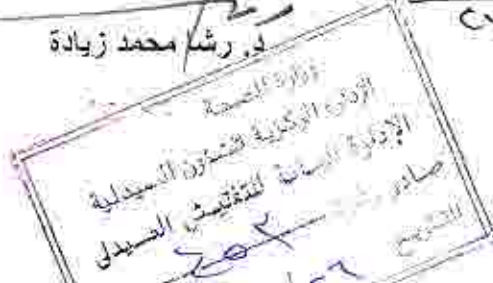 د. رشا محمد زيادة
وزارة الصحة
الإدارة المركزية للشئون الصيدلية
الإدارة العامة للتفتيش الصيدلى
صادر
٤٥٢